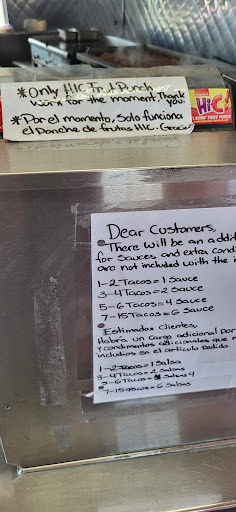 *Only HIC Fruit Punch
works for the moment, Thank
you
*Por el momento, Solo funciona
el Ponche de frutas HIC. Gracia
Hi-C
FLASHIN' FRUIT PUNCH
Dear Customers,
There will be an addit
for Sauces and extra Condi
are not included with the i
1-2 Tacos = 1 Sauce
3-4 Tacos = 2 Sauce
5-6 Tacos = 4 Sauce
7-15 Tacos = 6 Sauce
Estimados clientes,
Habra un Cargo adicional por
y condimentos adicionales que n
incluidos en el articulo Pedido.
1-2 Tacos = 1 Salsa
3-4 Tacos = 2 Salsas
5-6 Tacos = Salsas 4
7-15 Tacos = 6 Salsas